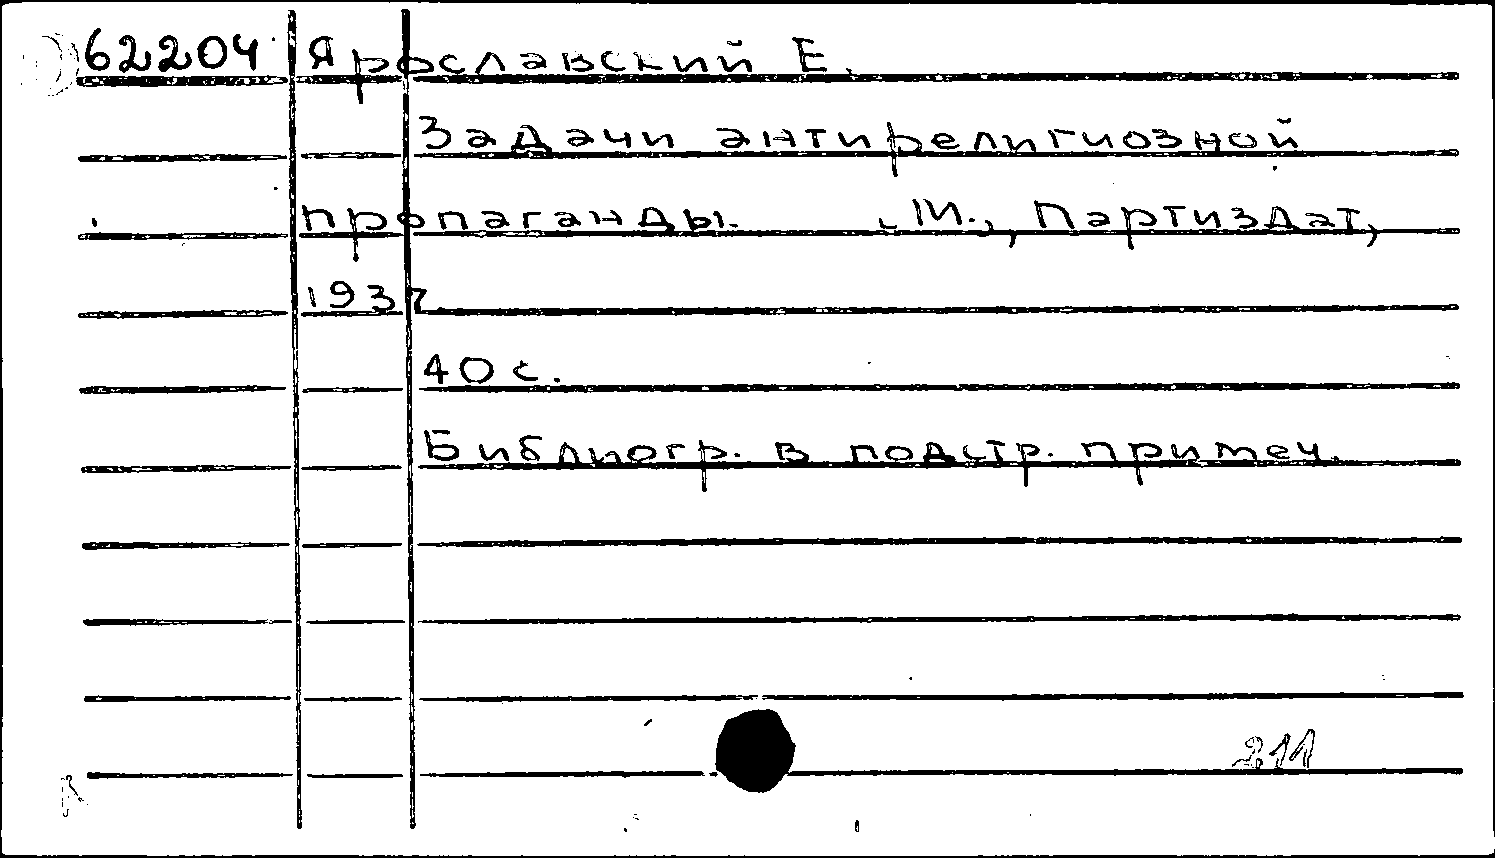 62204 Ярославский Е.
Задачи антирелигиозной
пропаганды. М., Партиздат,
1937.
40 с.
Библиогр. в подстр. примеч.
211